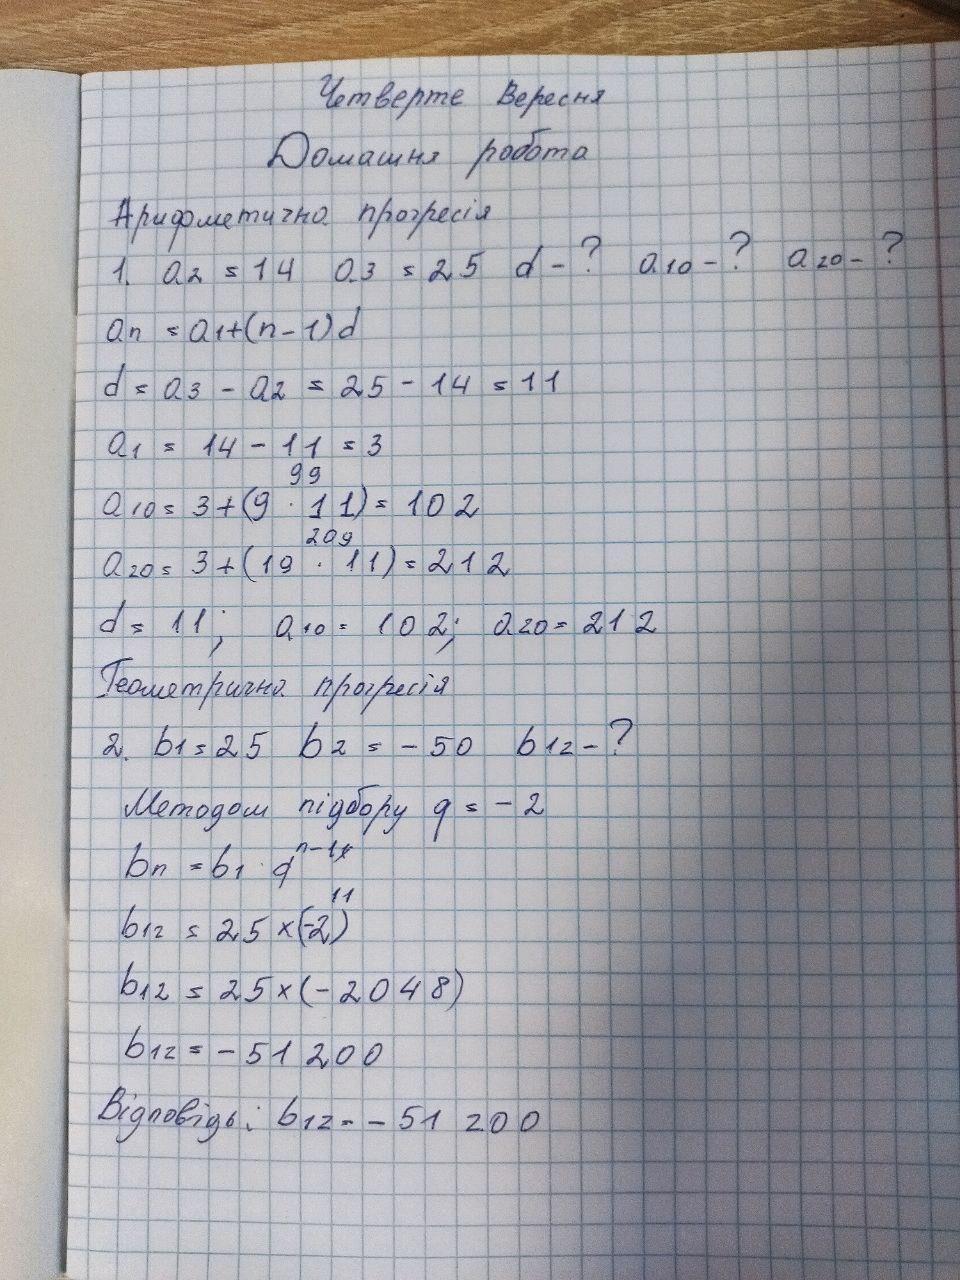 Четверте Вересня
Домашня робота
Арифметична прогресія
1. a2 = 14 a3 = 25 d - ? a10 - ? a20 - ?
an = a1+(n-1)d
d = a3 - a2 = 25 - 14 = 11
a1 = 14 - 11 = 3
99
a10 = 3+(9 · 11) = 102
209
a20 = 3+(19 · 11) = 212
d = 11; a10 = 102; a20 = 212
Геометрична прогресія
2. b1 = 25 b2 = -50 b12 - ?
Методом підбору q = -2
bn = b1 · q^n-1
b12 = 25 × (-2)^11
b12 = 25 × (-2048)
b12 = -51 200
Відповідь: b12 = -51 200